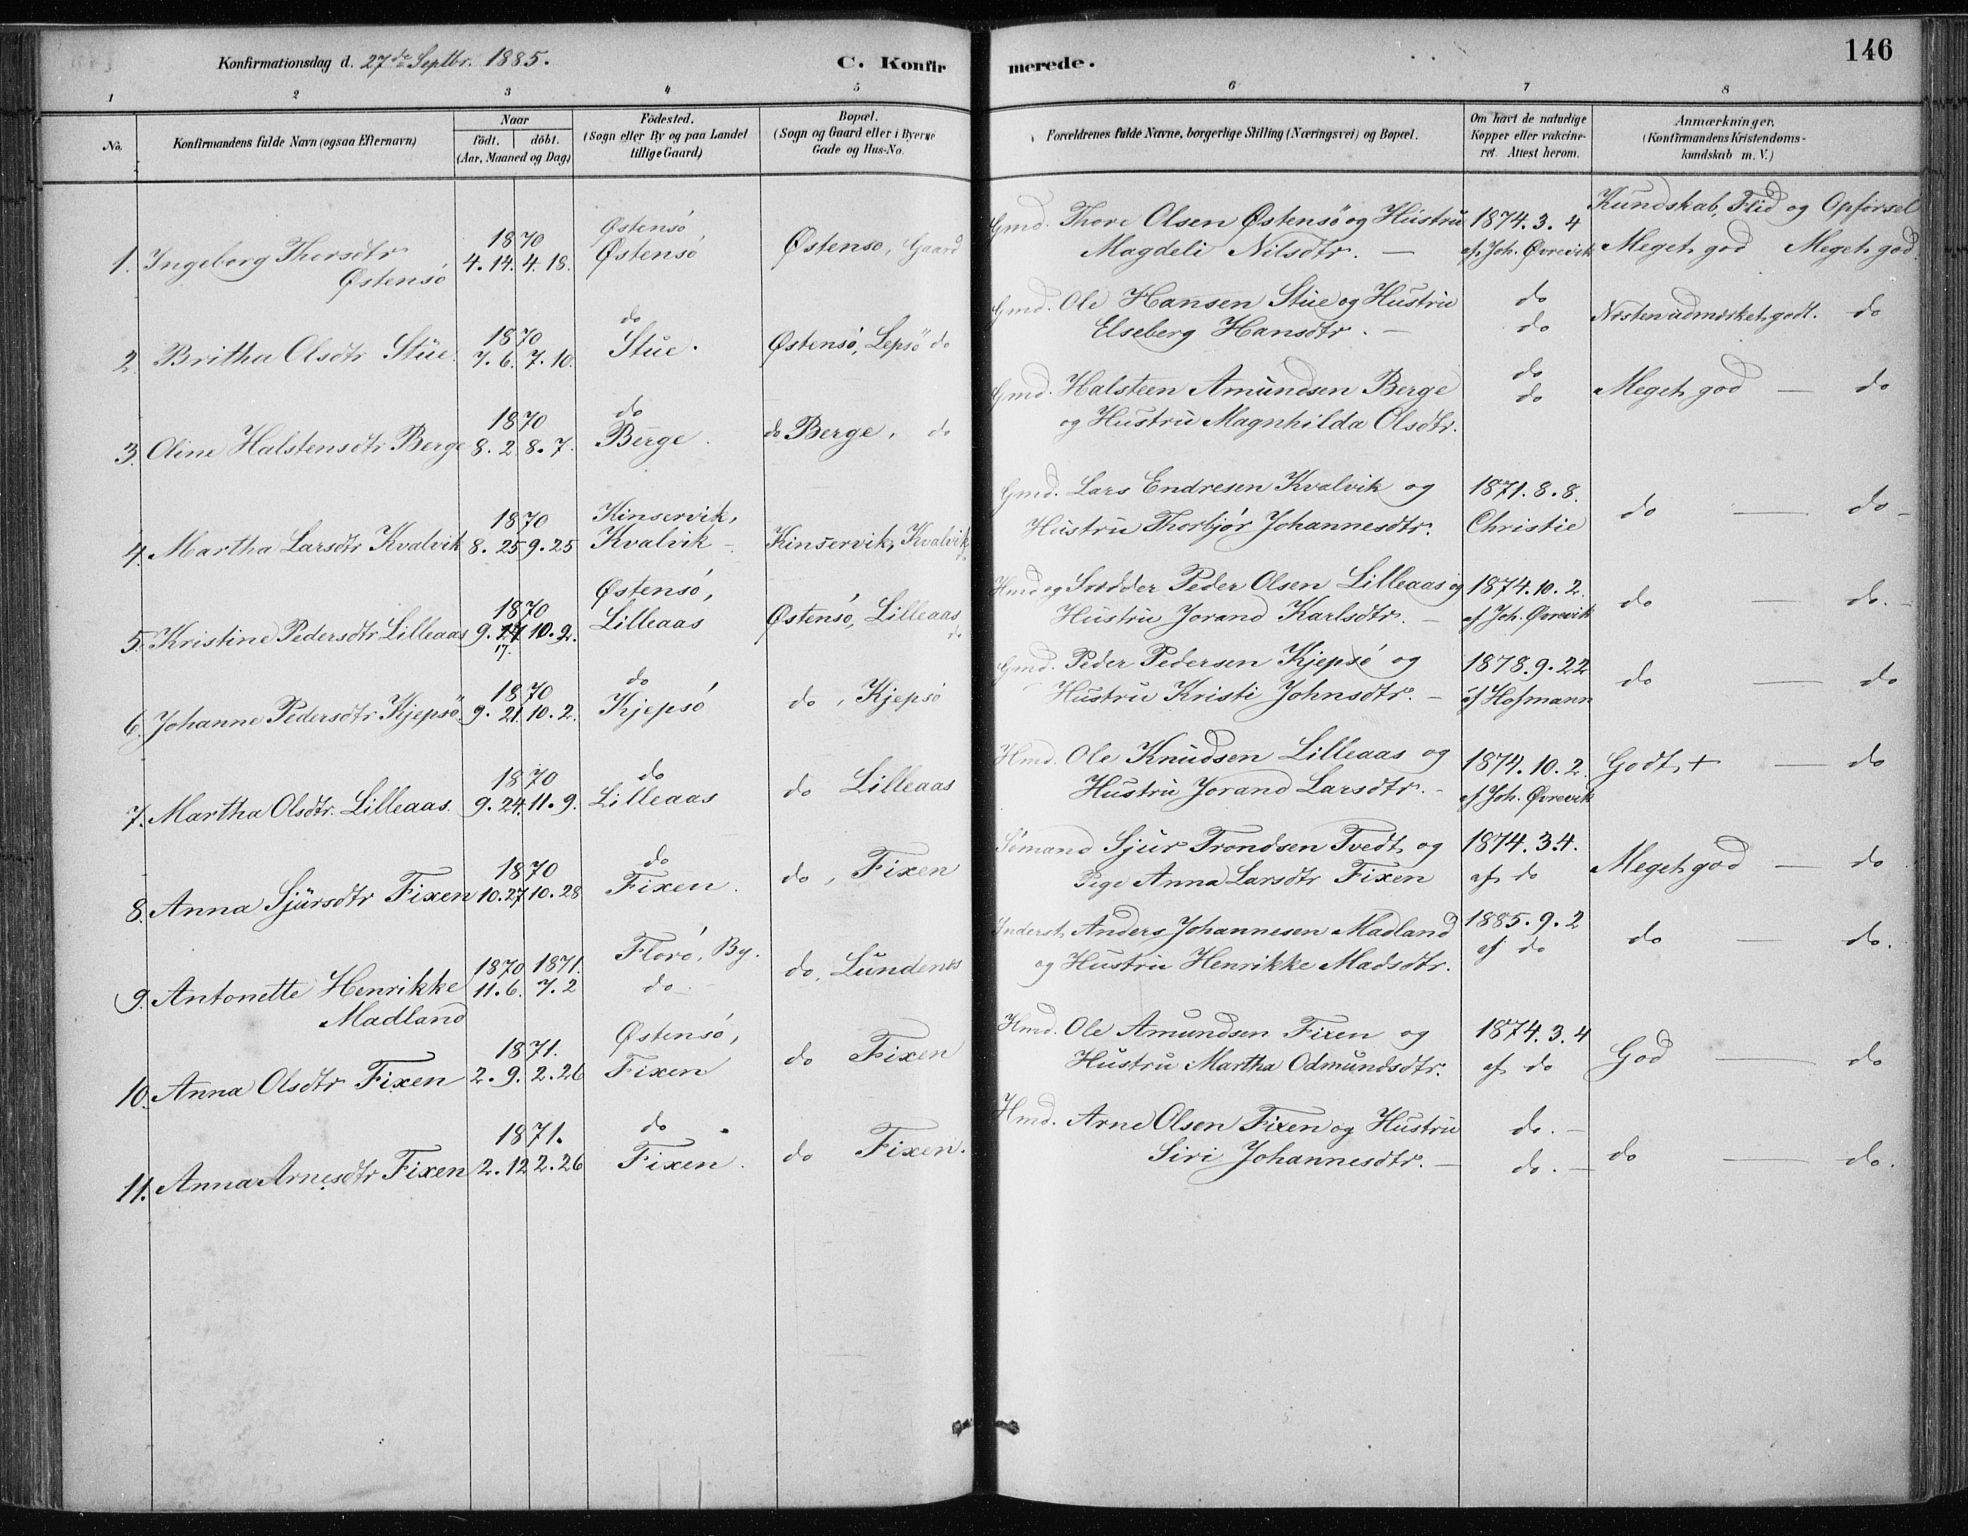 Konfirmationsdag d. 27de Septbr. 1885.
C. Konfir
merede.
146
1 2 3 4 5 6 7 8
No.
Konfirmandens fulde Navn (ogsaa Efternavn)
Naar
födt. döbt.
(Aar, Maaned og Dag)
Födested.
(Sogn eller By og paa Landet
tillige Gaard)
Bopæl.
(Sogn og Gaard eller i Byerne
Gade og Hus-No.
Forældrenes fulde Navne, borgerlige Stilling (Næringsvei) og Bopæl.
Om havt de naturlige
Kopper eller vakcine-
ret. Attest herom.
Anmærkninger,
(Konfirmandens Kristendoms-
kundskab m. V.)
1. Ingeborg Thorsdtr
Østensö
1870
4.14. 4.18.
Østensö,
Østensö
Østensö, Gaard
Gmd. Thore Olsen Østensö og Hustru
Magdeli Nilsdtr. —
1874.3.4
af Joh. Øvrevik
Kundskab, Flid og Opförsel
Meget god Meget god.
2. Britha Olsdtr Stue.
1870
7.6. 7.10.
do
Stue.
Østensö, Lepsö do
Gmd. Ole Hansen Stue og Hustru
Elseberg Hansdtr. —
do
do
Næsten udmærket godt. do
3. Oline Halstensdtr Berge
1870
8.2 8.7.
do
Berge.
do Berge, do
Gmd. Halsteen Amundsen Berge
og Hustru Magnhilda Olsdtr.
do
do
Meget god — do
4. Martha Larsdtr Kvalvik
1870
8.25 9.25
Kinservik,
Kvalvik —
Kinservik, Kvalvik
do
Gmd. Lars Endresen Kvalvik og
Hustru Thorbjör Johannesdtr.
1871.8.8.
Christie
do — do —
5. Kristine Pedersdtr Lilleaas
1870
9. 10.2.
17.
Østensö,
Lilleaas
Østensö, Lilleaas
do
Hmd og Peder Olsen Lilleaas og
Hustru Jorand Karlsdtr. —
1874.10.2.
af Joh. Øvrevik
do — do. —
6. Johanne Pedersdtr Kjepsö
1870
9.21. 10.2.
do
Kjepsö
do, Kjepsö
Gmd. Peder Pedersen Kjepsö og
Hustru Kristi Johnsdtr. —
1878.9.22
af Hofmann
do — do
7. Martha Olsdtr. Lilleaas.
1870
9.24. 11.9.
do
Lilleaas
do Lilleaas
Hmd. Ole Knudsen Lilleaas og
Hustru Jorand Larsdtr. —
1874.10.2.
af Joh. Øvrevik
Godt + — do
8. Anna Sjursdtr Fixen
1870
10.27 10.28
do
Fixen.
do, Fixen
Sömand Sjur Trondsen Tvedt og
Pige Anna Larsdtr Fixen
1874.3.4.
af do
Meget god — do
9. Antonette Henrikke
Madland
1870 1871.
11.6. 7.2
Florö, By.
do —
do, Lundenes
Inderst. Anders Johannesen Madland
og Hustru Henrikke Madsdtr.
1885.9.2
af do
do — do.
10. Anna Olsdtr Fixen
1871.
2.9. 2.26
Østensö,
Fixen
do Fixen
Hmd. Ole Amundsen Fixen og
Hustru Martha Odmundsdtr.
1874.3.4
af do
God — do
11. Anna Arnesdtr Fixen
1871.
2.12 2.26
do
Fixen.
do Fixen.
Hmd. Arne Olsen Fixen og Hustru
Siri Johannesdtr. —
do. —
do. —
do — do.